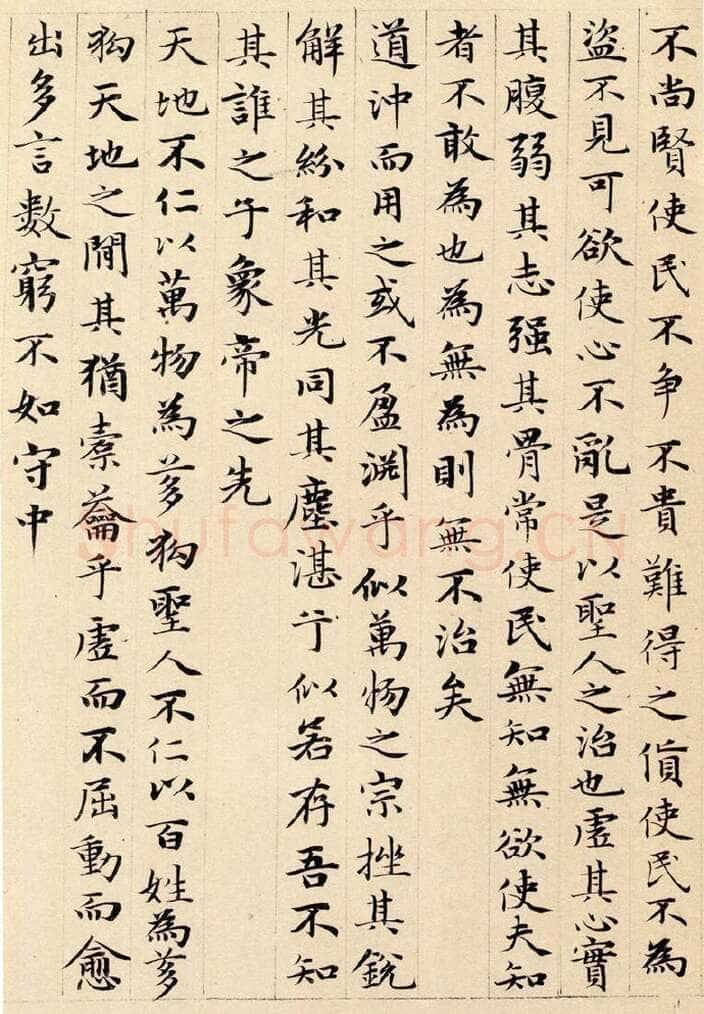 不尚賢使民不争不貴難得之貨使民不為
盜不見可欲使心不亂是以聖人之治也虛其心實
其腹弱其志强其骨常使民無知無欲使夫知
者不敢為也為無為則無不治矣
道沖而用之或不盈淵乎似萬物之宗挫其銳
解其紛和其光同其塵湛兮似若存吾不知
其誰之子象帝之先
天地不仁以萬物為芻狗聖人不仁以百姓為芻
狗天地之間其猶橐籥乎虛而不屈動而愈
出多言數窮不如守中
shufawang.cn